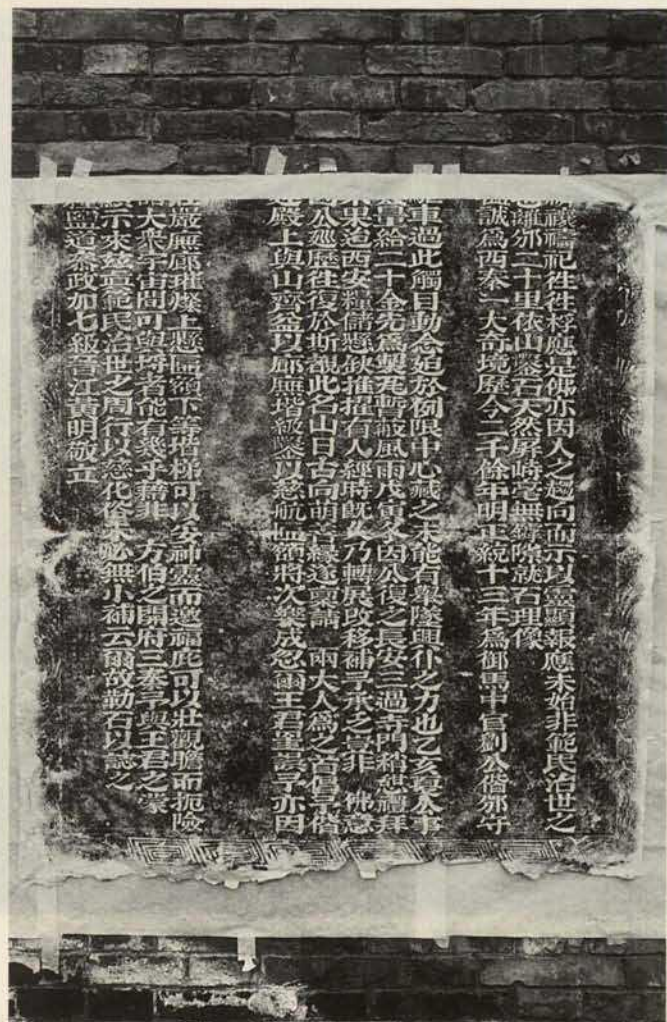 禳禱祀徃徃桴應曽是佛亦因人之趨向而示以靈顯報應未始非範民治世之
離邠二十里依山鑿石天然屏峙毫無罅隙就石理像
誠為西秦一大奇境歷今二千餘年明正統十三年為御馬中官劉公偕邠守
車過此觸目動念迫於例限中心藏之未能有舉墜興仆之力也乙亥夏
量給二十金先為製瓦暫蔽風雨戊寅冬因公復之長安三過寺門稽懇禮拜
果追西安糧儲懸缺推擢有人經時旣久乃轉展改移補予承之豈非 佛意
公經歷徃復於斯覩此名山日古向萌善緣遂稟請 兩大人為之首倡予偕
殿上與山齋盆以廊廡堦級鑿以慈航匾額將次樂成忽爾王君 予亦因
嚴廡廊璀燦上懸匾額下壽堦梯可以安神靈而邀福庇可以壯觀瞻而扼險
大衆宇宙間可與埒者能有幾乎藉非 方伯之開府三秦予與王君之
示來茲眞範民治世之周行以慈化俗未必無小補云爾故勒石以誌之
鹽道叅政加七級晉江黃明敬立